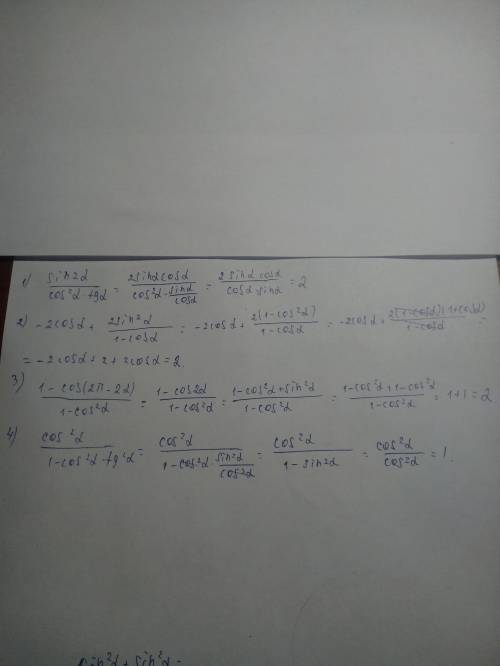 1) sin2α / cos²α tgα = 2sinα cosα / cos²α · sinα/cosα = 2 sinα cosα / cosα · sinα = 2
2) -2cosα + 2sin²α / 1-cosα = -2cosα + 2(1-cos²α) / 1-cosα = -2cosα + 2(1-cosα)(1+cosα) / 1-cosα =
= -2cosα + 2 + 2cosα = 2.
3) 1-cos(2π-2α) / 1-cos²α = 1-cos2α / 1-cos²α = 1-cos²α+sin²α / 1-cos²α = 1-cos²α+1-cos²α / 1-cos²α = 1+1=2.
4) cos²α / 1-cos²α · tg²α = cos²α / 1-cos²α · sin²α/cos²α = cos²α / 1-sin²α = cos²α / cos²α = 1.